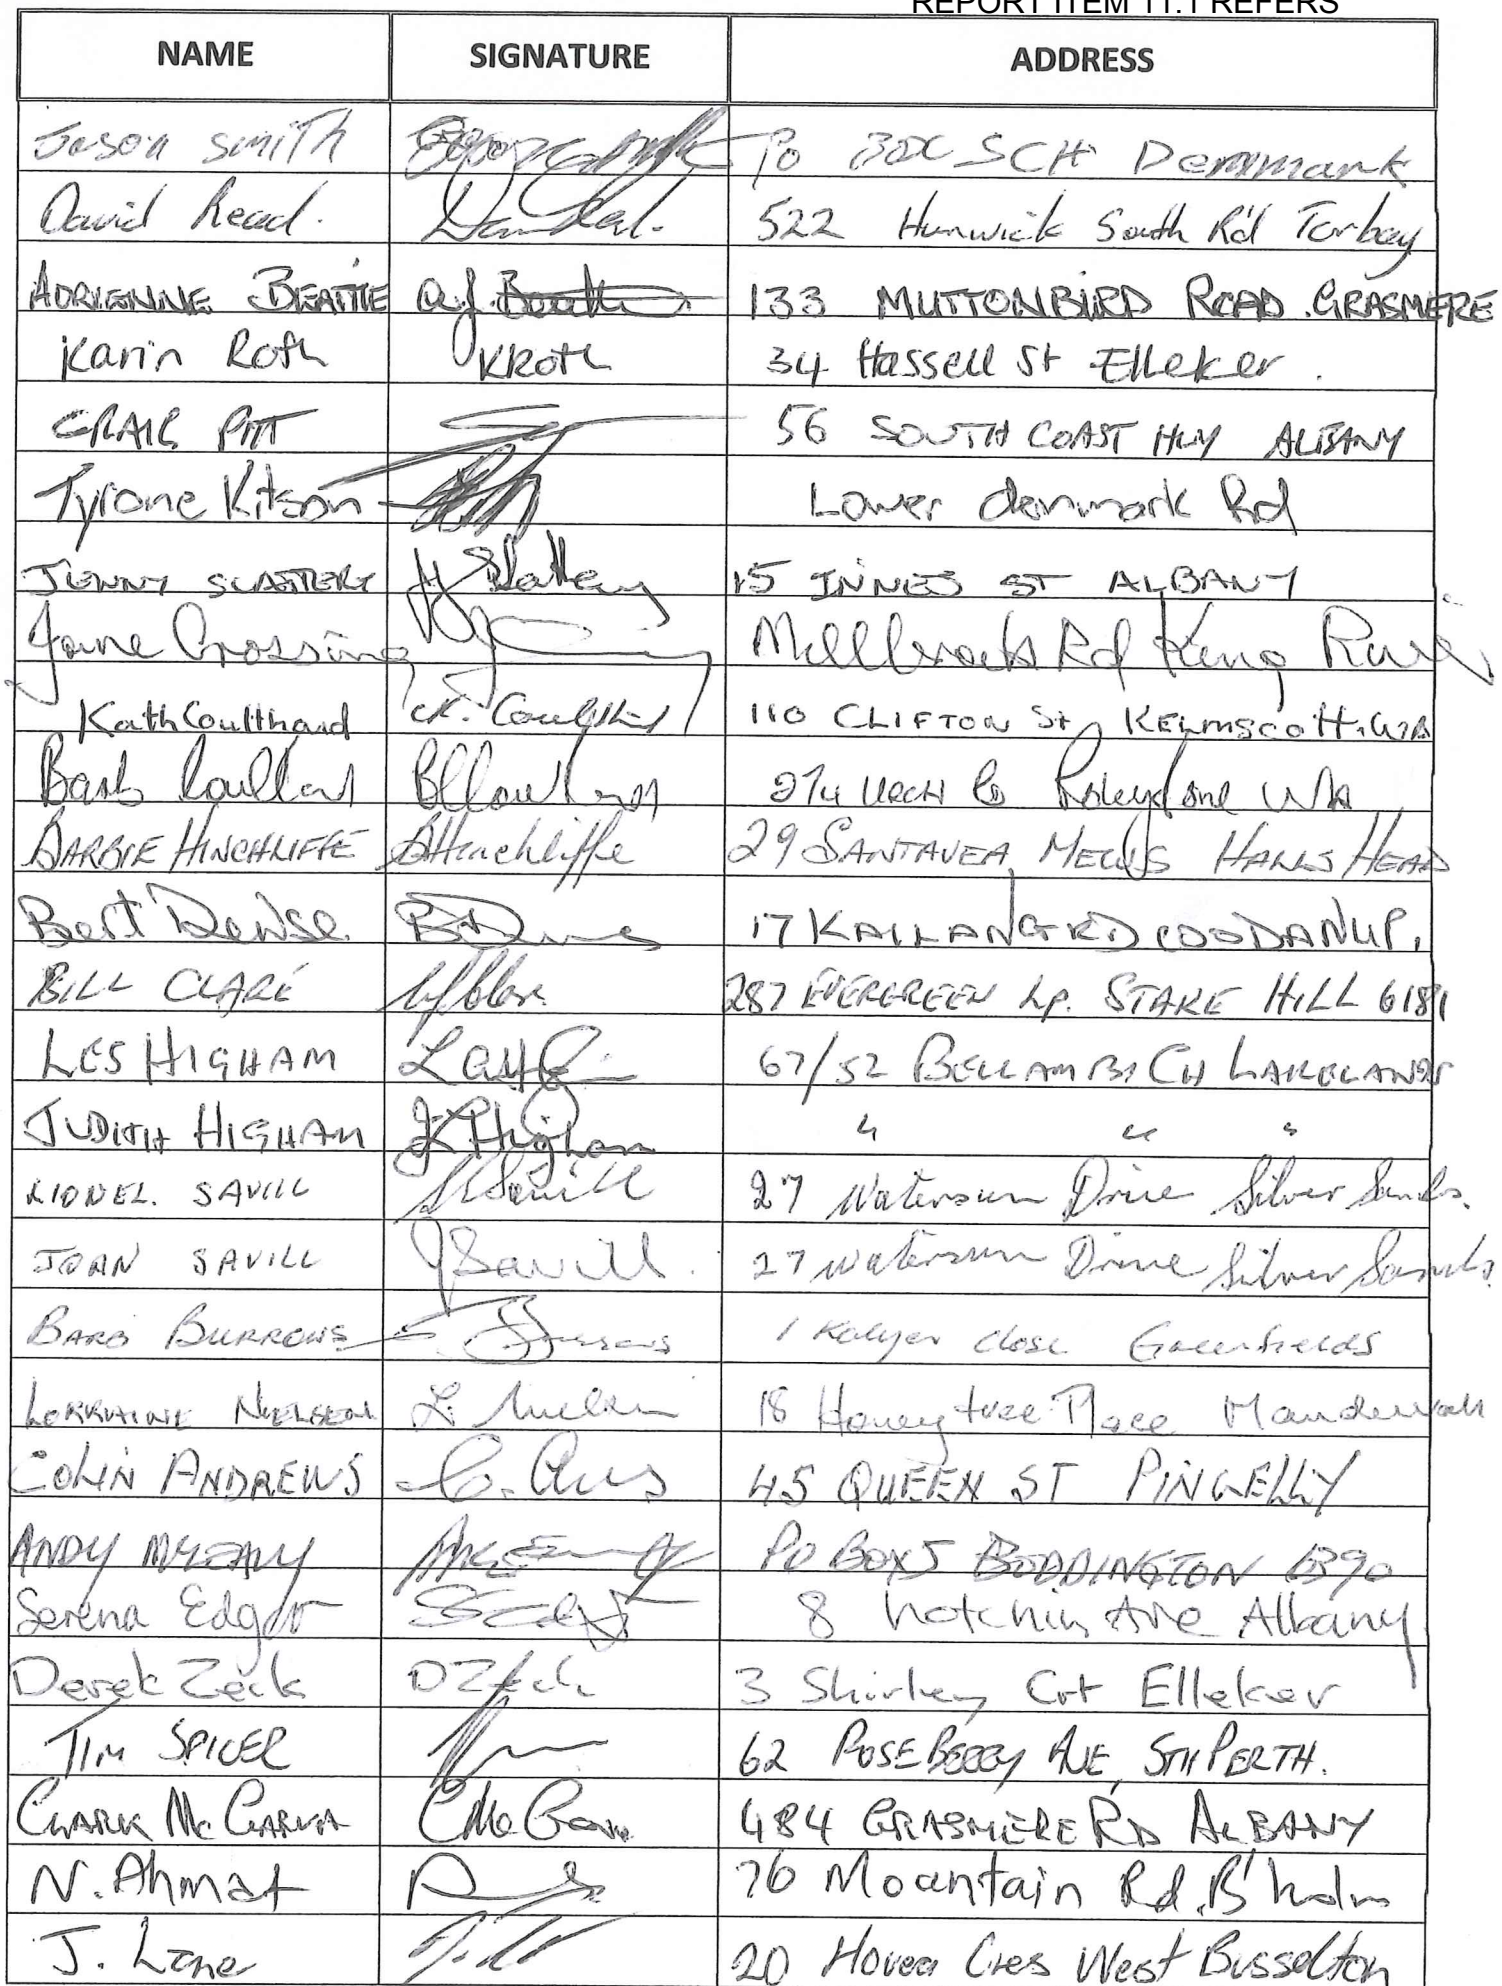 REPORT ITEM 11.1 REFERS
NAME SIGNATURE ADDRESS
Jason Smith PO BOX Denmark
David Read. 522 Hunwick South Rd Torbay
ADRIENNE BEATTIE a.j. Beattie 133 MUTTONBIRD ROAD. GRASMERE
Karin Roth KRoth 34 Hassell St Elleker.
CRAIG PITT 56 SOUTH COAST HWY ALBANY
Tyrone Kitson Lower denmark Rd
JENNY SLATTERY J Slattery 15 INNES ST ALBANY
Jane Crossing Millbrook Rd King River
Kath Coulthard K. Coulthard 110 CLIFTON St, KELMSCOTT. WA
Barb 274 Roleystone WA
BARBIE HINCHLIFFE BHinchliffe 29 SANTAVEA MEWS HALLS HEAD
Bert Dewse. 17 KAILANG RD COODANUP.
BILL CLARE 287 EVERGREEN Lp. STAKE HILL 6181
LES HIGHAM 67/52 BELLAMBI CH LAKELANDS
JUDITH HIGHAM J Higham " " "
LIONEL. SAVILL Savill 27 Watersun Drive Silver Sands.
JOAN SAVILL J Savill. 27 Watersun Drive Silver Sands.
BARB BURROWS Burrows 1 Close Greenfields
LORRAINE NIELSEN L. Nielsen 18 Honeytree Place Mandurah
COLIN ANDREWS 45 QUEEN ST PINGELLY
ANDY PO BOX 5 BODDINGTON 6390
Serena Edgar 8 hotchin Ave Albany
Derek Zeck D Zeck 3 Shirley Crt Elleker
TIM SPICER 62 ROSEBERRY AVE, STH PERTH.
CLARK McGARVA 484 GRASMERE RD ALBANY
N. Ahmat 76 Mountain Rd, B'holm
J. Lane 20 Hovea Cres West Busselton